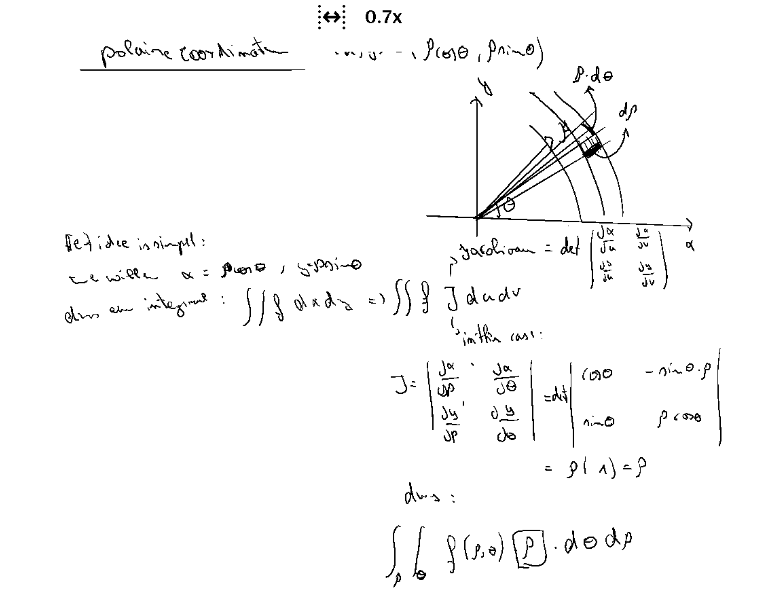 0.7x
polaire coordinaten (x, y) → (ρcosθ, ρsinθ)
y
ρ.dθ
dρ
θ
x
Het idee is simpel:
we willen x = ρcosθ, y=ρsinθ
dus een integraal: ∫∫ f dxdy => ∫∫ f J du dv
Jacobiaan = det | dx/du dx/dv |
| dy/du dy/dv |
in this case:
J = | dx/dρ dx/dθ | = det | cosθ -sinθ.ρ |
| dy/dρ dy/dθ | | sinθ ρcosθ |
= ρ(1) = ρ
dus:
∫ρ ∫θ f(ρ,θ) ρ . dθ dρ